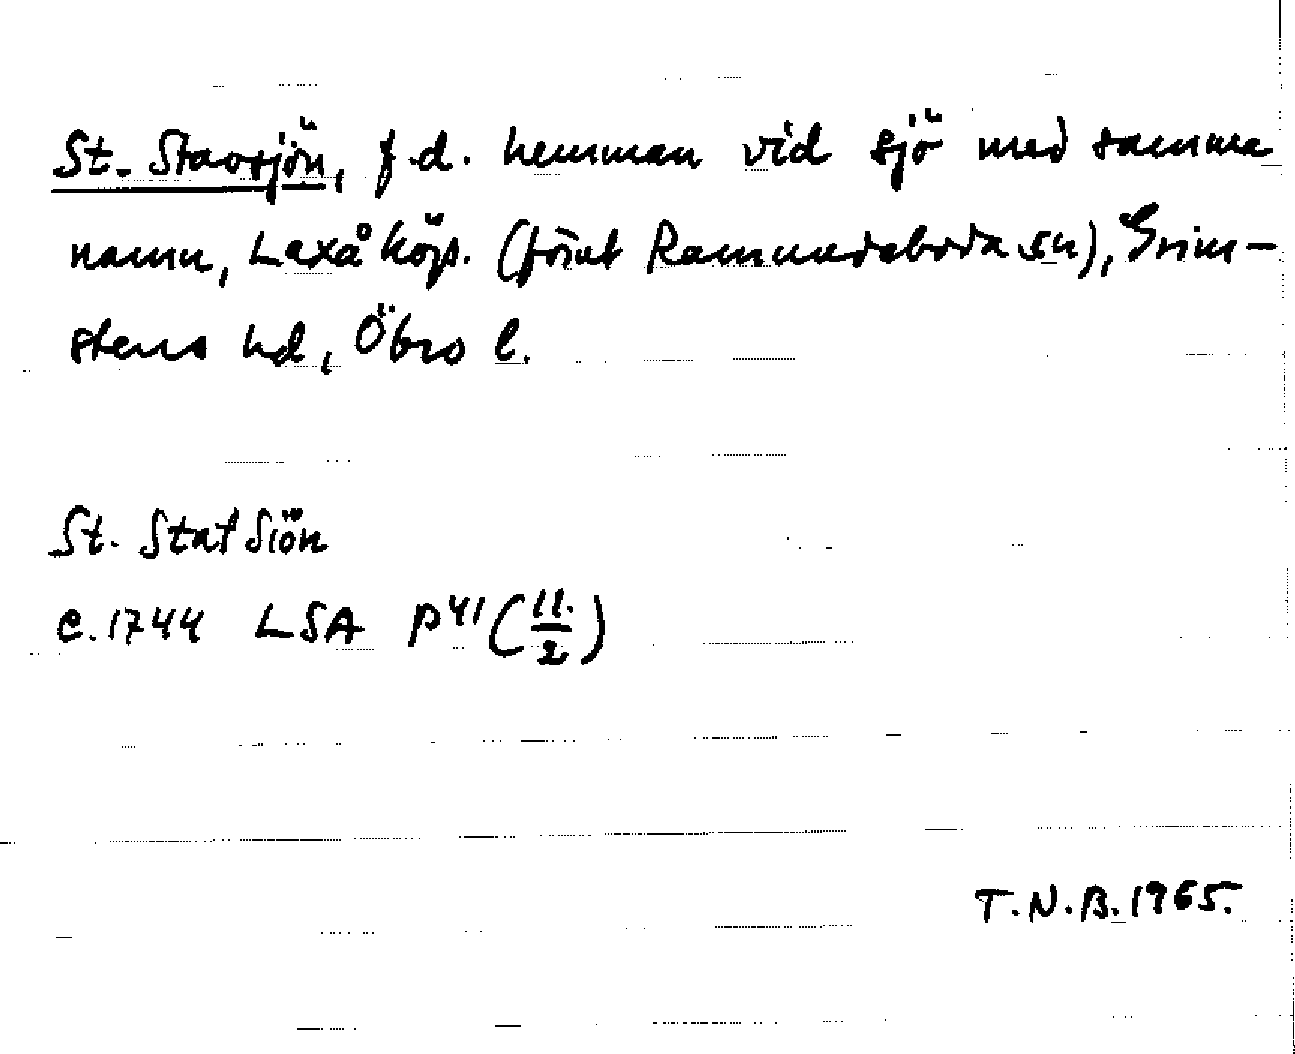 St. Stavsjön, f.d. hemman vid sjö med samma
namn, Laxå köp. (förut Ramundeboda sn), Grim-
stens hd, Öbro l.
St. StafSiön
c. 1744 LSA P41 (11./2)
T.N.B. 1965.